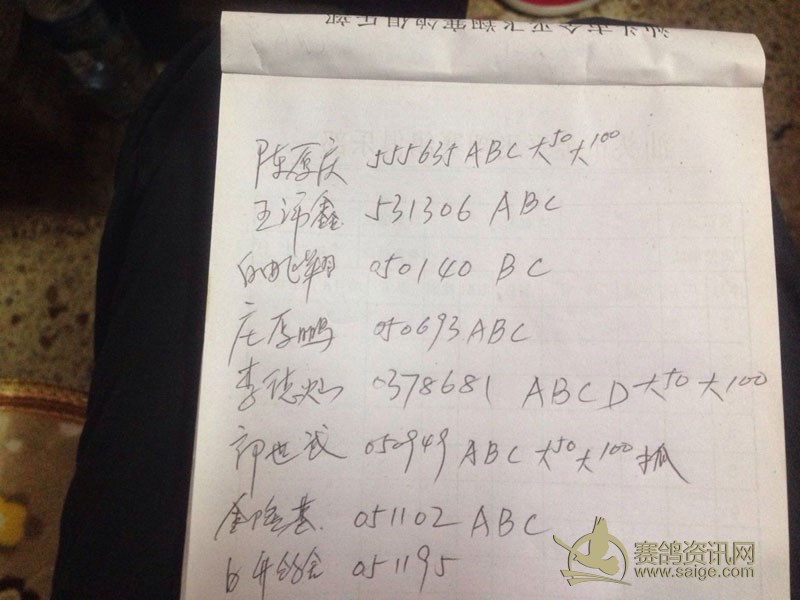 汕头市金平飞翔赛鸽俱乐部
陈厚庆 555635 ABC 大50 大100
王沛鑫 531306 ABC
自由飞翔 050140 BC
庄厚鹏 050693 ABC
李德灿 0378681 ABCD 大50 大100
世武 050949 ABC 大50 大100 抓
金隆基 051102 ABC
051195
赛鸽资讯网
www.saige.com